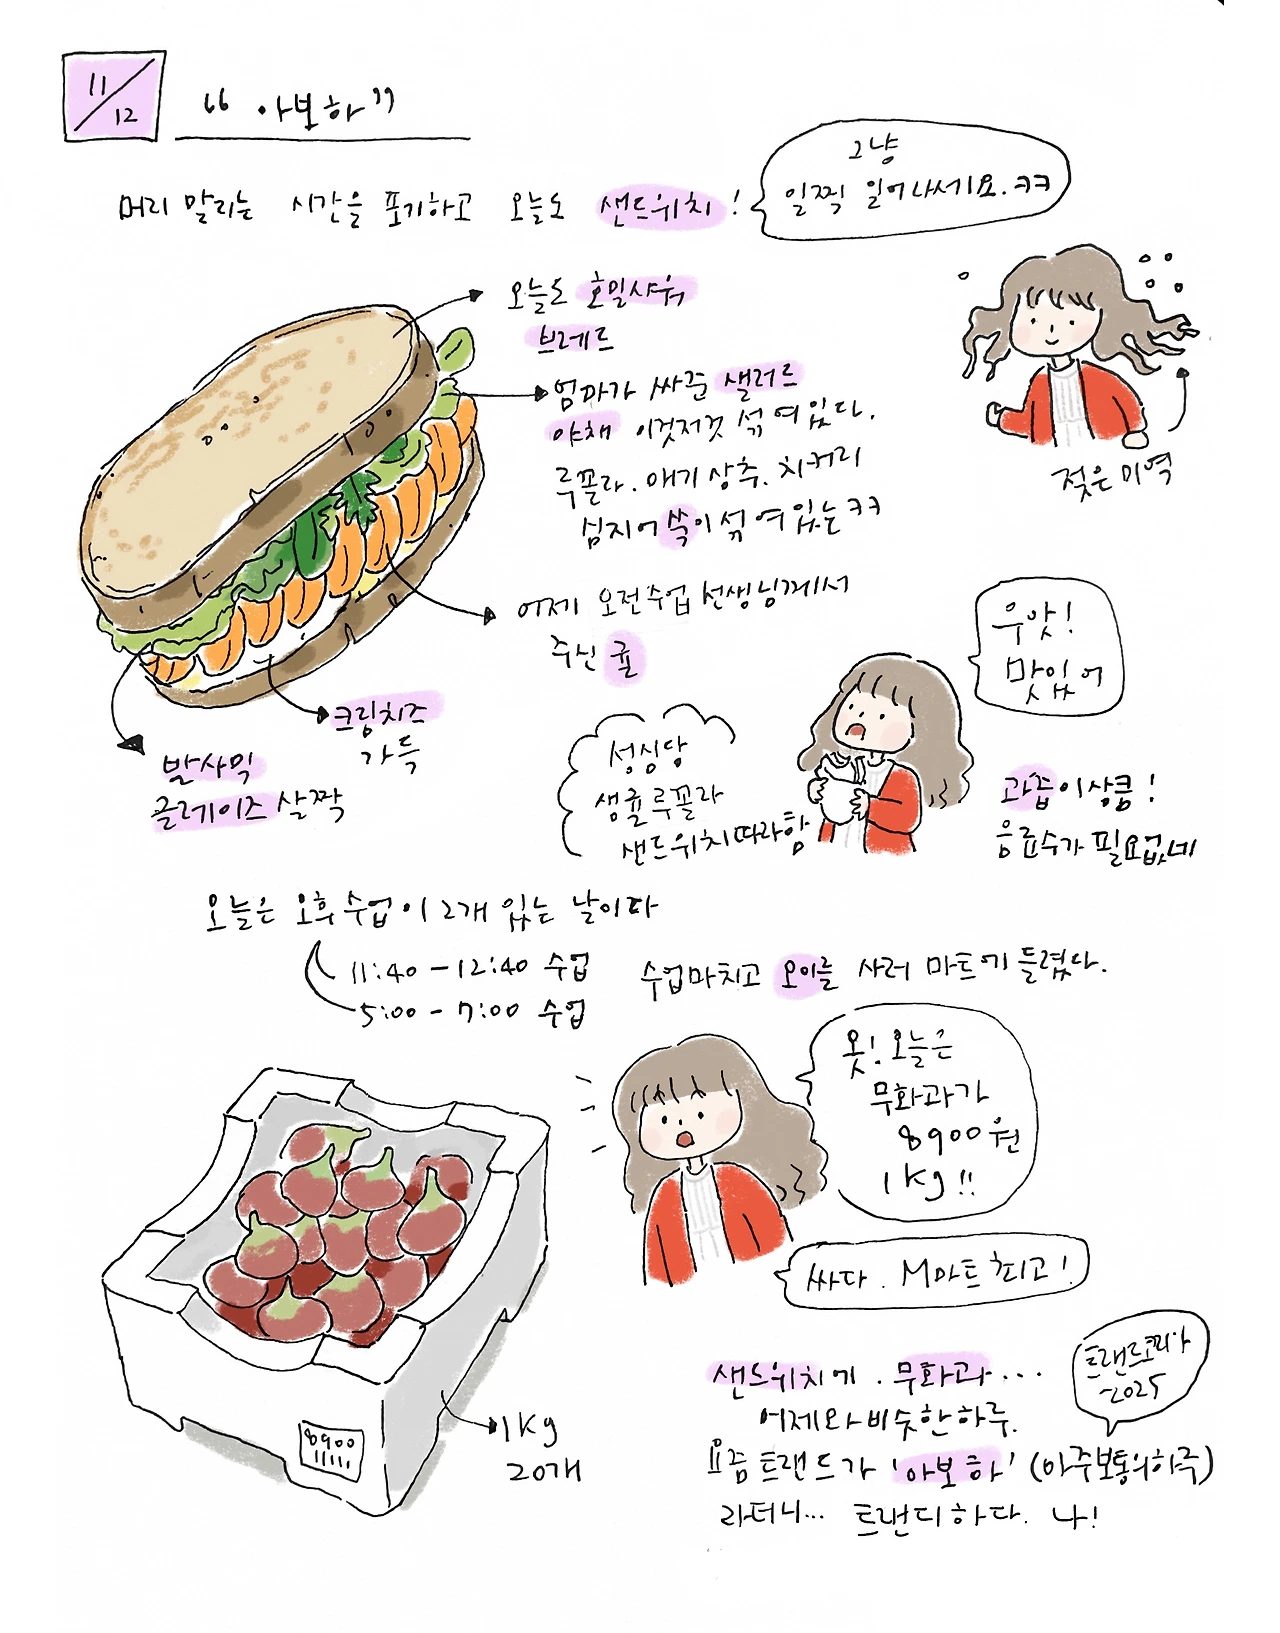 11/12
"아보하"
머리 말리는 시간을 포기하고 오늘도 샌드위치!
그냥
일찍 일어나세요.ㅋㅋ
오늘도 호밀사워
브레드
엄마가 싸준 샐러드
야채 이것저것 섞여있다.
루꼴라. 애기상추. 치커리
심지어 쑥이 섞여있는ㅋㅋ
젖은 미역
어제 오전수업 선생님께서
주신 귤
크림치즈
가득
발사믹
글레이즈 살짝
우앗!
맛있어
성심당
생귤루꼴라
샌드위치 따라함
과즙이 상큼!
음료수가 필요없네
오늘은 오후수업이 2개 있는 날이다
11:40 - 12:40 수업
5:00 - 7:00 수업
수업마치고 오이를 사러 마트에 들렸다.
옷! 오늘은
무화과가
8900원
1kg!!
싸다. M마트 최고!
8900
1kg
20개
샌드위치에. 무화과...
어제와 비슷한 하루.
트랜드코리아
-2025
요즘 트랜드가 '아보하' (아주보통의하루)
라더니... 트랜디하다. 나!